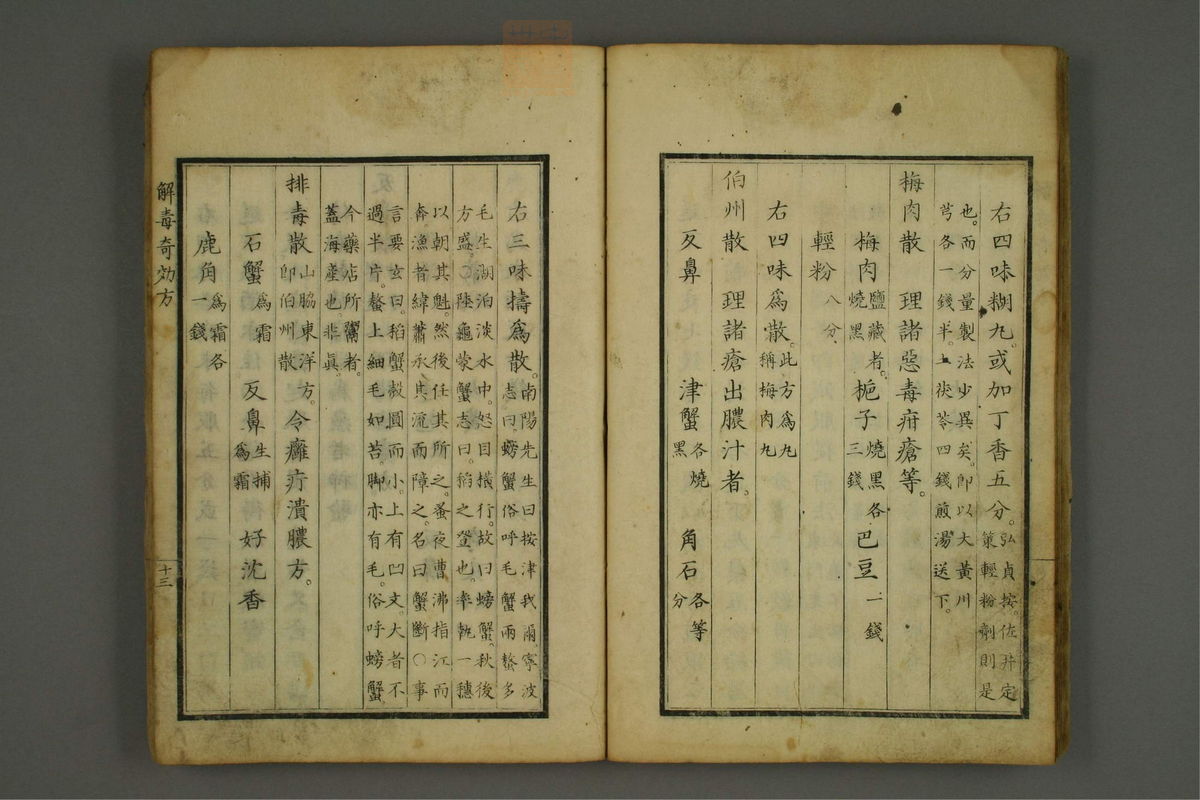 右四味糊丸。或加丁香五分。弘貞按。佐井定
策輕粉劑則是
也。而分量製法少異矣。即以大黃川
芎各一錢半。土茯苓四錢煎湯送下。
梅肉散　理諸惡毒疳瘡等。
梅肉鹽藏者。燒黑　梔子燒黑各三錢　巴豆一錢
輕粉八分、
右四味爲散。此方爲丸稱梅肉丸
伯州散　理諸瘡出膿汁者。
反鼻　津蟹各燒黑　角石各等分
右三味擣爲散。南陽先生曰按津我濔寧波
志曰。螃蟹俗呼毛蟹兩螯多
毛生湖泊淡水中。怒目橫行。故曰螃蟹。秋後
方盛。陸龜蒙蟹志曰。稻之登也。率執一穗
以朝其魁。然後任其所之。蚤夜曹沸指江而
奔漁者緯蕭承其流而障之。名曰蟹斷〇事
言要玄曰。稻蟹殼圓而小。上有凹文。大者不
過半片。螯上細毛如苔。脚亦有毛。俗呼螃蟹
今藥店所鬻者。
蓋海產也。非眞。
排毒散山脇東洋方。即伯州散　令癰疔潰膿方。
石蟹爲霜　反鼻生捕爲霜　好沈香
鹿角爲霜各一錢
解毒奇効方
十三